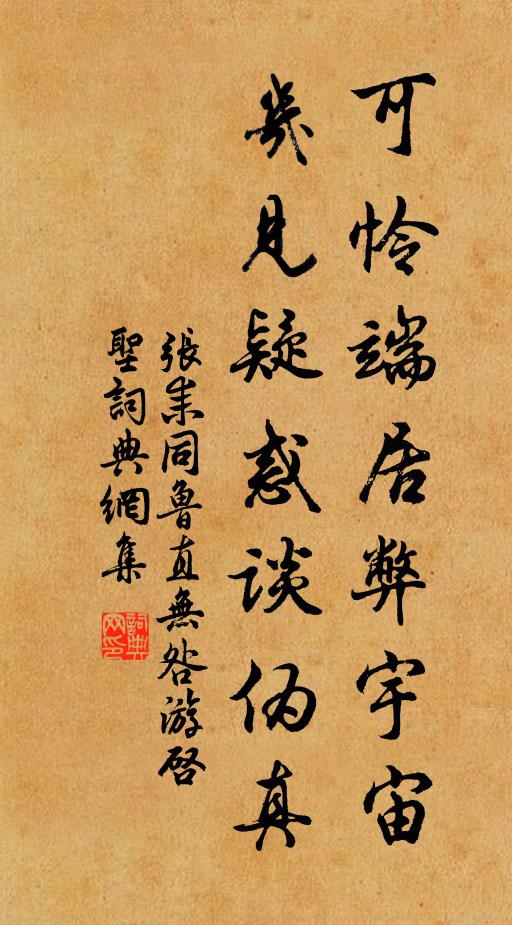 可怜端居弊宇宙
幾見疑惑談偽真
張耒同魯直無咎游啓
聖詞典網集
詞典網印